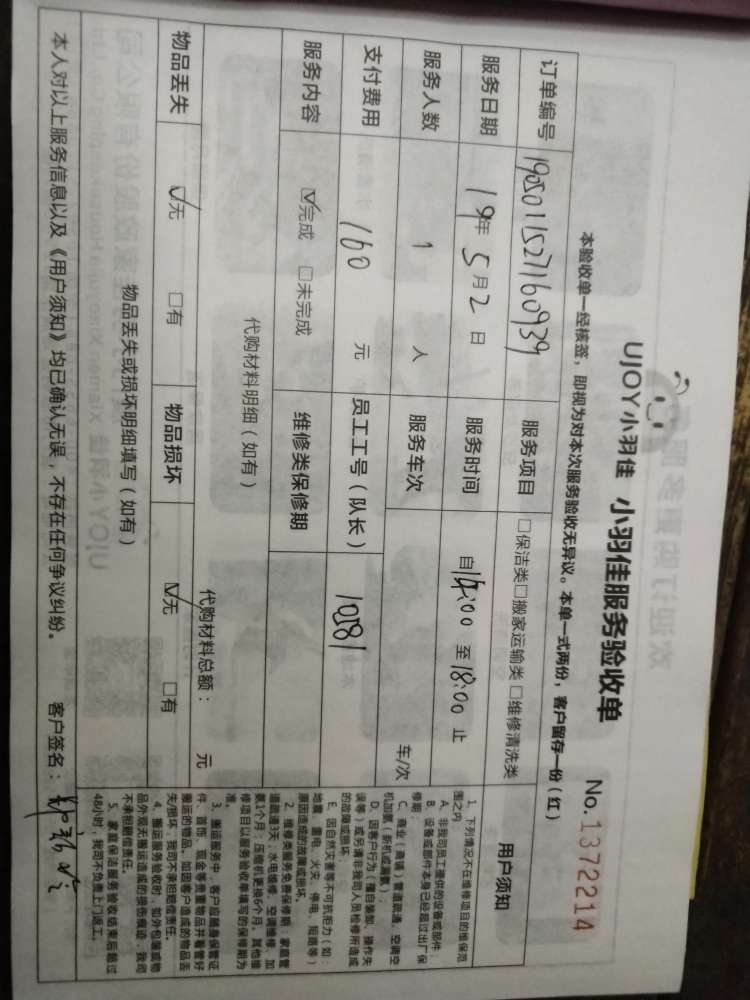 UJOY小羽佳 小羽佳服务验收单 No.1372214
本验收单一经核签，即视为对本次服务验收无异议。本单一式两份，客户留存一份（红）
订单编号 190501152716 0939 服务项目 □保洁类□搬家运输类□维修清洗类
服务日期 19年 5月2日 服务时间 自14:00 至18:00 止
服务人数 1 人 服务车次 车/次
支付费用 160 元 员工工号（队长） 10581
服务内容 ☑完成 □未完成 维修类保修期
代购材料明细（如有）
代购材料总额： 元
物品丢失 ☑无 □有 物品损坏 ☑无 □有
物品丢失或损坏明细填写（如有）
本人对以上服务信息以及《用户须知》均已确认无误，不存在任何争议纠纷。 客户签名：
用户须知
1、下列情况不在维修项目的维保范
围之内：
A、非我司员工提供的设备或部件；
B、设备或部件本身已经超过出厂保
修期；
C、商业（高管）管道疏通、空调空
机加氟（新机或漏氟）；
D、因客户行为（擅自装卸、操作失
误等）或另请非我司人员检修所造成
的故障或损坏；
E、因自然灾害等不可抗拒力（如：
地震、雷电、火灾、停电、短路等）
原因造成的故障或损坏。
2、维修类服务免费保修期：家庭管
道疏通3天；水电维修、空调维修、加
氟1个月；压缩机更换6个月。其他维
修项目以服务验收单填写的保修期为
准。
3、搬运服务中，客户应随身保管证
件、首饰、现金等贵重物品并看管好
搬运的物品。如因客户造成的物品丢
失/损坏，我司不承担赔偿责任。
4、搬运服务验收时，如外包装或物
品外观无搬运造成的损伤痕迹，我司
不承担赔偿责任。
5、家庭保洁服务验收结束后超过
48小时，我司不负责上门返工。